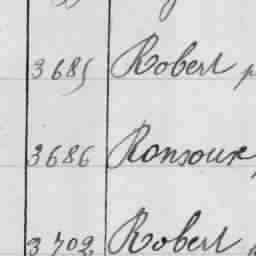 3685 Robert
3686 Ronsoux
3702 Robert